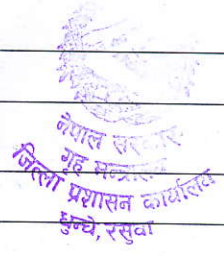 नेपाल सरकार
गृह मन्त्रालय
जिल्ला प्रशासन कार्यालय
धुन्चे, रसुवा